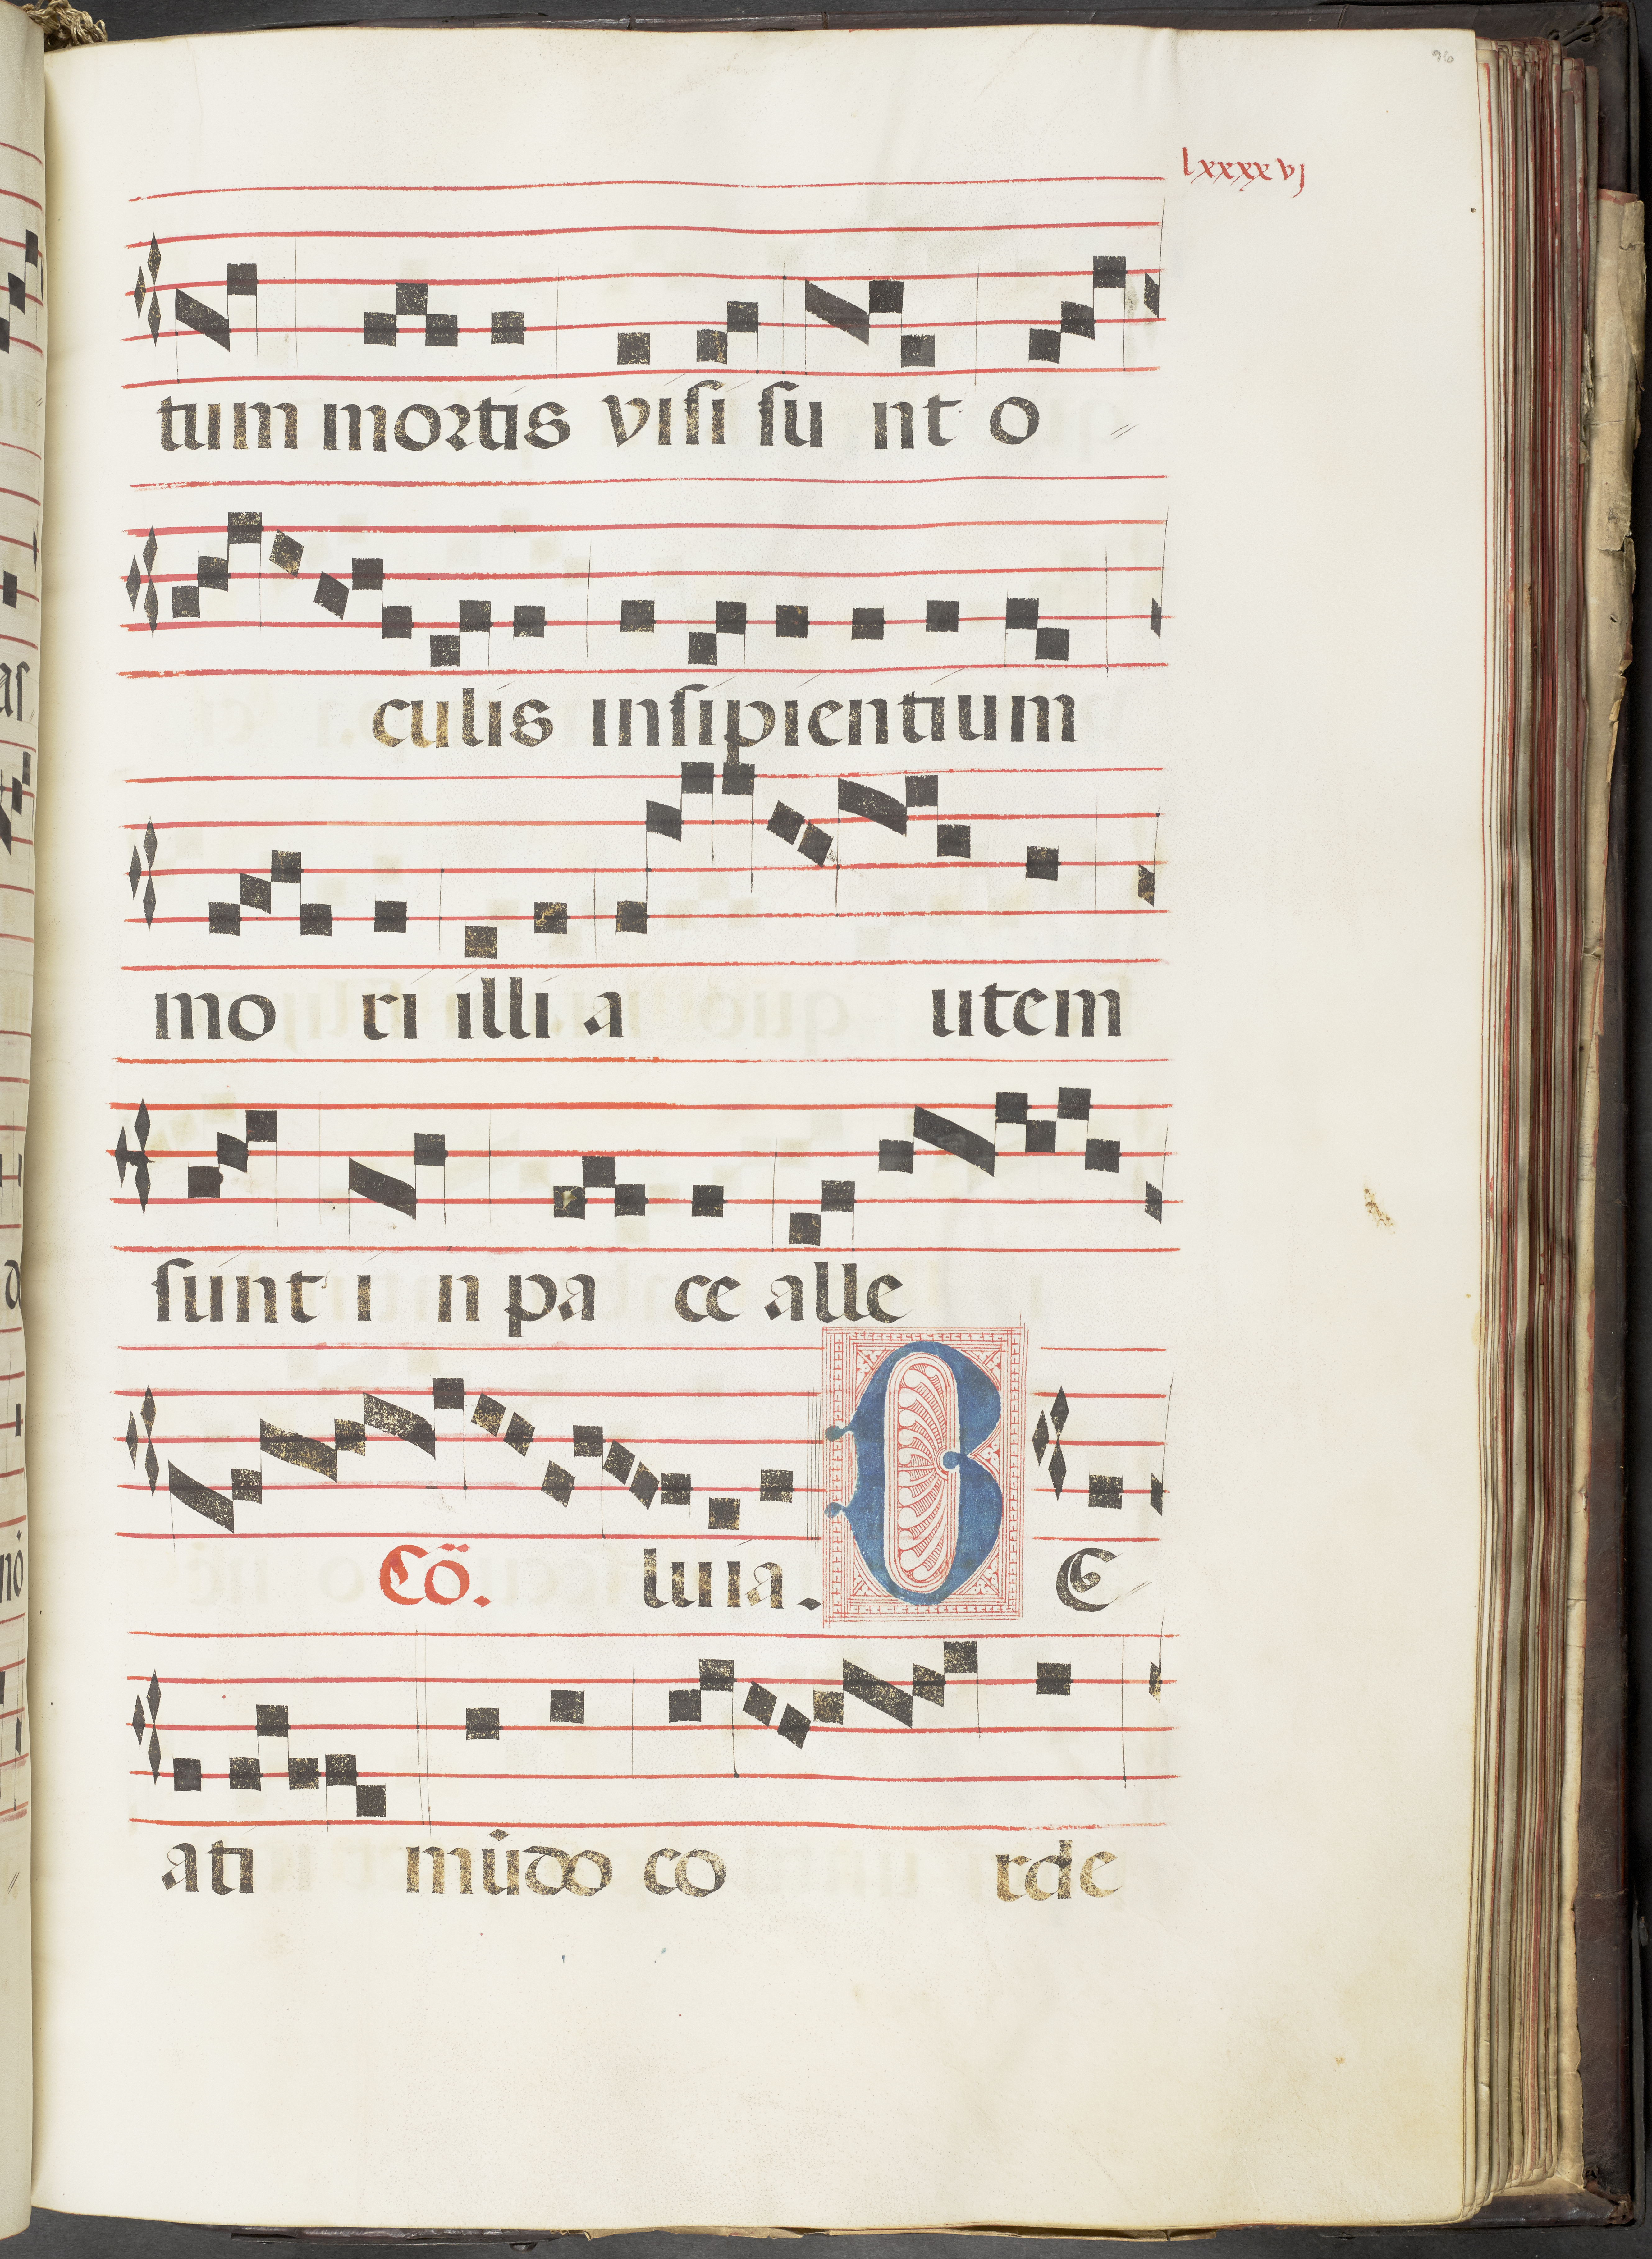 96
lxxxxvj
tum mortis visi su nt o
culis insipientium
mo ri illi a utem
sunt i n pa ce alle
Cō. luia. B E
ati mūdo co rde